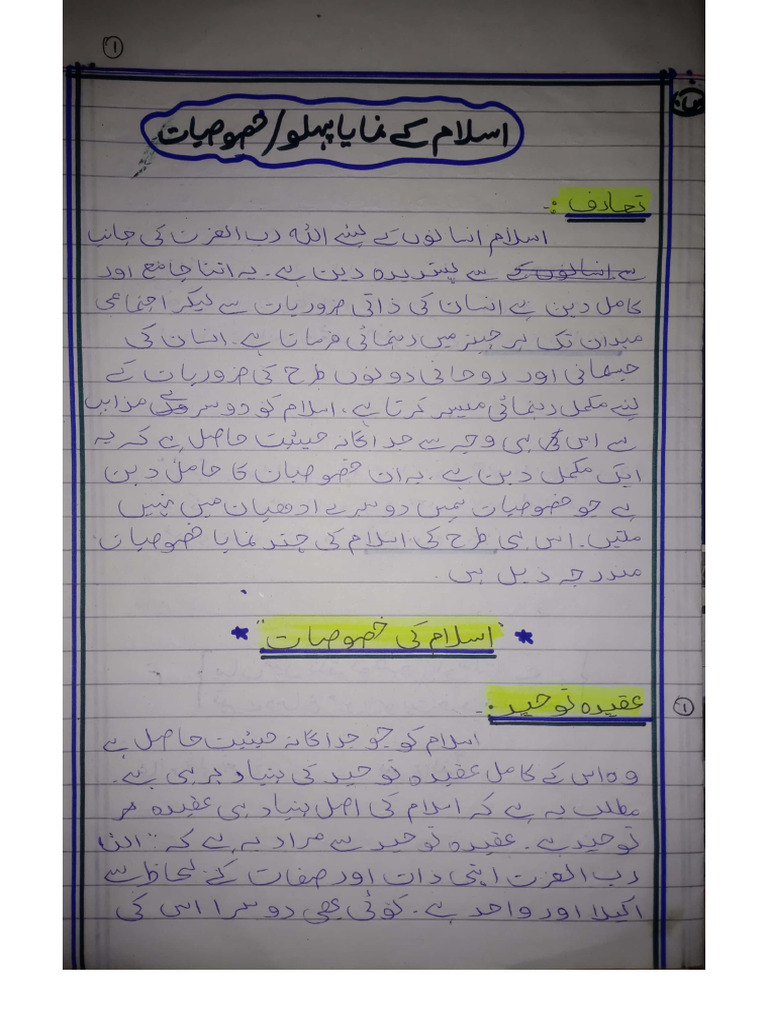 ۱
اسلام کے نمایا پہلو/خصوصیات
تعارف :۔
اسلام انسانوں کے لیئے اللہ رب العزت کی جانب
سے انسانوں کے سے پسندیدہ دین ہے۔ یہ اتنا جامع اور
کامل دین ہے انسان کی ذاتی ضروریات سے لیکر اجتماعی
میدان تک ہر چیز میں رہنمائی فرماتا ہے۔ انسان کی
جسمانی اور روحانی دونوں طرح کی ضروریات کے
لیئے مکمل رہنمائی میسر کرتا ہے، اسلام کو دوسرے مذاہب
سے اس ہی وجہ سے جداگانہ حیثیت حاصل ہے کہ یہ
ایک مکمل دین ہے۔ یہ ان خصوصیات کا حامل دین
ہے جو خصوصیات ہمیں دوسرے ادھیان میں نہیں
ملتیں۔ اس ہی طرح کی اسلام کی چند نمایا خصوصیات
مندرجہ ذیل ہیں۔
* "اسلام کی خصوصیات" *
۱ عقیدہ توحید :۔
اسلام کو جو جداگانہ حیثیت حاصل ہے
وہ اس کے کامل عقیدہ توحید کی بنیاد پر ہی ہے۔
مطلب یہ ہے کہ اسلام کی اصل بنیاد ہی عقیدہ
توحید ہے۔ عقیدہ توحید سے مراد یہ ہے کہ: "اللہ
رب العزت اپنی ذات اور صفات کے لحاظ سے
اکیلا اور واحد ہے۔ کوئی بھی دوسرا اس کی